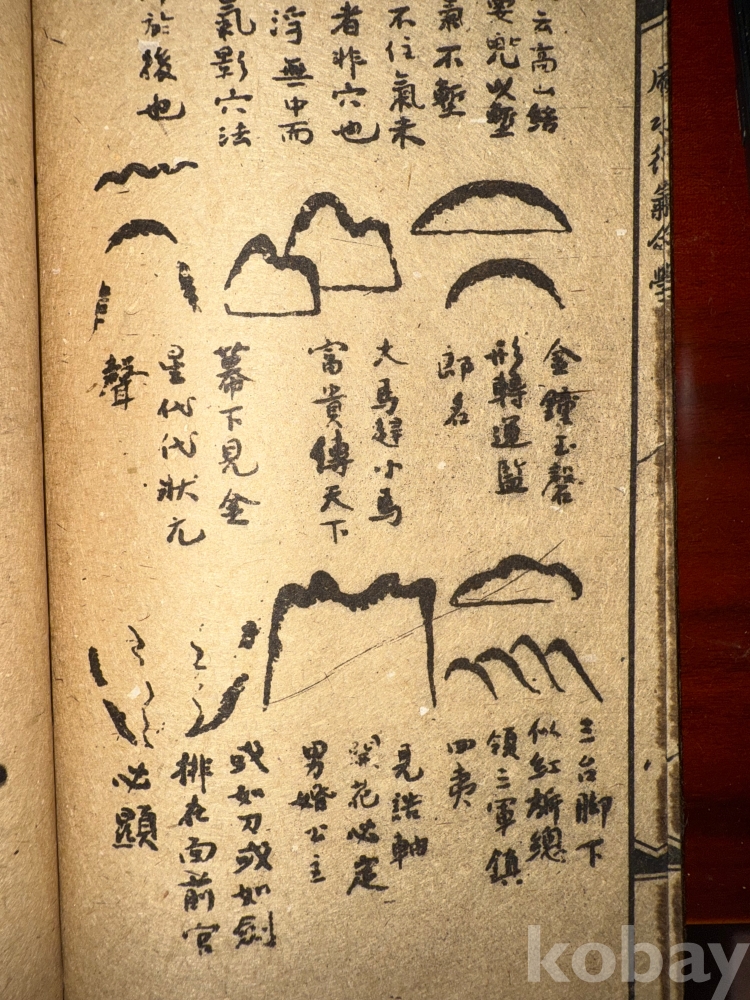 云高山結
要兜以塹
氣不塹
不住氣未
者非穴也
浮無中而
氣影穴法
於後也
金鐘玉磬
形轉運監
郎名
大馬趕小馬
富貴傳天下
幕下見金
星代代狀元
聲
三台腳下
似紅旂總
領三軍鎮
四夷
見誥軸
開花必定
男婚公主
或如刀或如劍
排在面前官
必顯
kobay